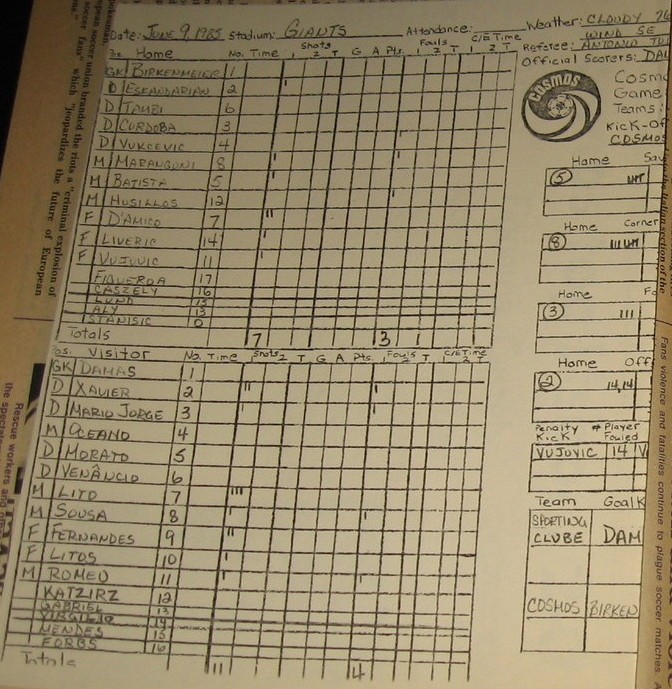 Date: JUNE 9, 1985 Stadium: GIANTS Attendance: Weather: CLOUDY
WIND SE
Referee: ANTONIO
Official Scorers:
Shots Fouls C/E Time
Home No. Time 1 2 T G A Pts. 1 2 T 1 2 T
GK BIRKENMEIER 1
D ESKANDARIAN 2
D TAMBI 6
D CORDOBA 3
D VUKCEVIC 4
M MARANGONI 8
M BATISTA 5
M HUSILLOS 12
F D'AMICO 7
F LIVERIC 14
F VUJOVIC 11
FIGUEROA 17
CASZELY 16
LUND 15
ALY 13
STANISIC 0
Totals 7 3
Pos. Visitor No. Time Shots 2 T G A Pts. 1 Fouls T C/E Time
GK DAMAS 1
D XAVIER 2
D MARIO JORGE 3
M OCEANO 4
D MORATO 5
D VENÂNCIO 6
M LITO 7
M SOUSA 8
F FERNANDES 9
F LITOS 10
M ROMEU 11
KATZIRZ 12
GABRIEL 13
VIRGILIO 14
MENDES 15
FORBS 16
Totals 11 4
COSMOS
Game
Teams:
Kick-Of
COSMOS
Home
5
Home Corner
8
Home
3
Home Off
2 14, 14
Penalty Kick # Player Fouled
VUJOVIC 14
Team Goal K
SPORTING
CLUBE DAM
COSMOS BIRKEN
european soccer union branded the riots a "criminal explosion of
soccer fans" which "jeopardizes the future of European
Rescue workers and
the spectators
Fans violence and fatalities continue to plague soccer matches.